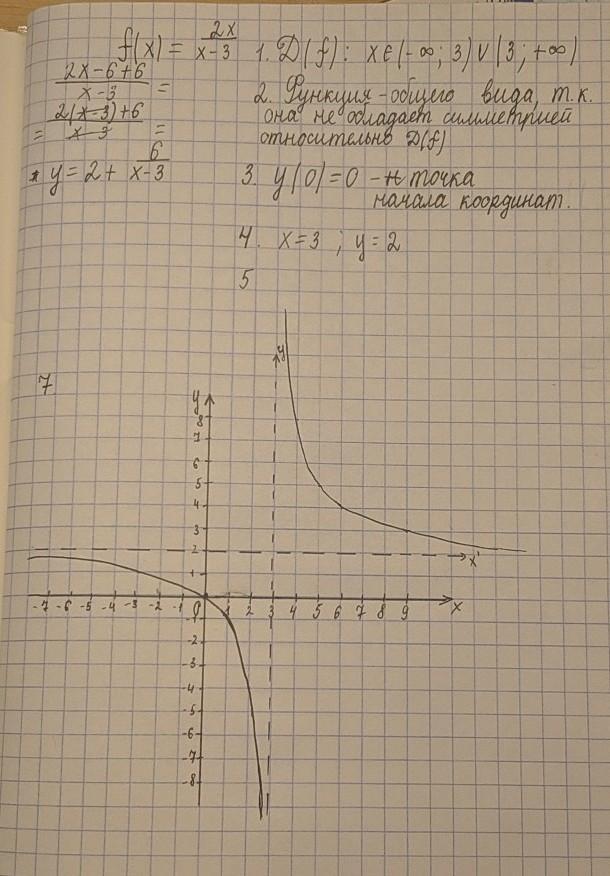 f(x) = 2x/(x-3)
1. D(f): x∈(-∞; 3)∪(3; +∞)
(2x-6+6)/(x-3) =
= (2(x-3)+6)/(x-3) =
* y = 2 + 6/(x-3)
2. Функция - общего вида, т.к.
она не обладает симметрией
относительно D(f)
3. y(0)=0 - точка
начала координат.
4. x=3 ; y=2
5
7
y
y'
8
7
6
5
4
3
2
1
x'
-7 -6 -5 -4 -3 -2 -1 0 1 2 3 4 5 6 7 8 9 x
-1
-2
-3
-4
-5
-6
-7
-8